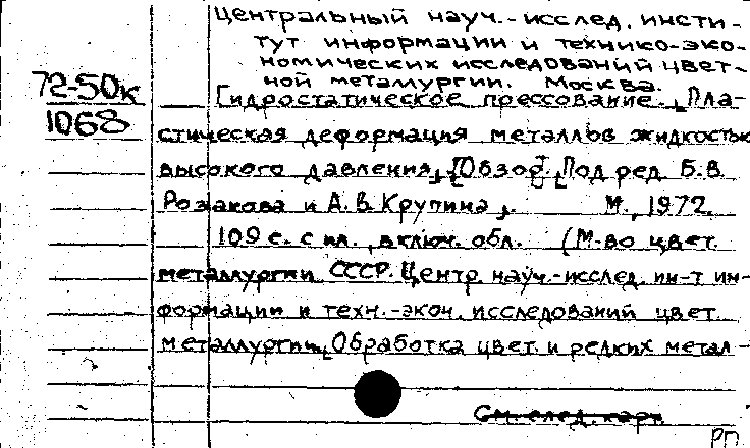 Центральный науч.-исслед. инсти-
тут информации и технико-эко-
номических исследований цвет-
ной металлургии. Москва.
72-50к
1068
Гидростатическое прессование. Пла-
стическая деформация металлов жидкостью
высокого давления. [Обзор]. Под ред. Б.В.
Розанова и А.В. Крупина. М., 1972.
109 с. с ил., включ. обл. (М-во цвет.
металлургии СССР. Центр. науч.-исслед. ин-т ин-
формации и техн.-экон. исследований цвет.
металлургии. Обработка цвет. и редких метал-
См. след. карт.
РП